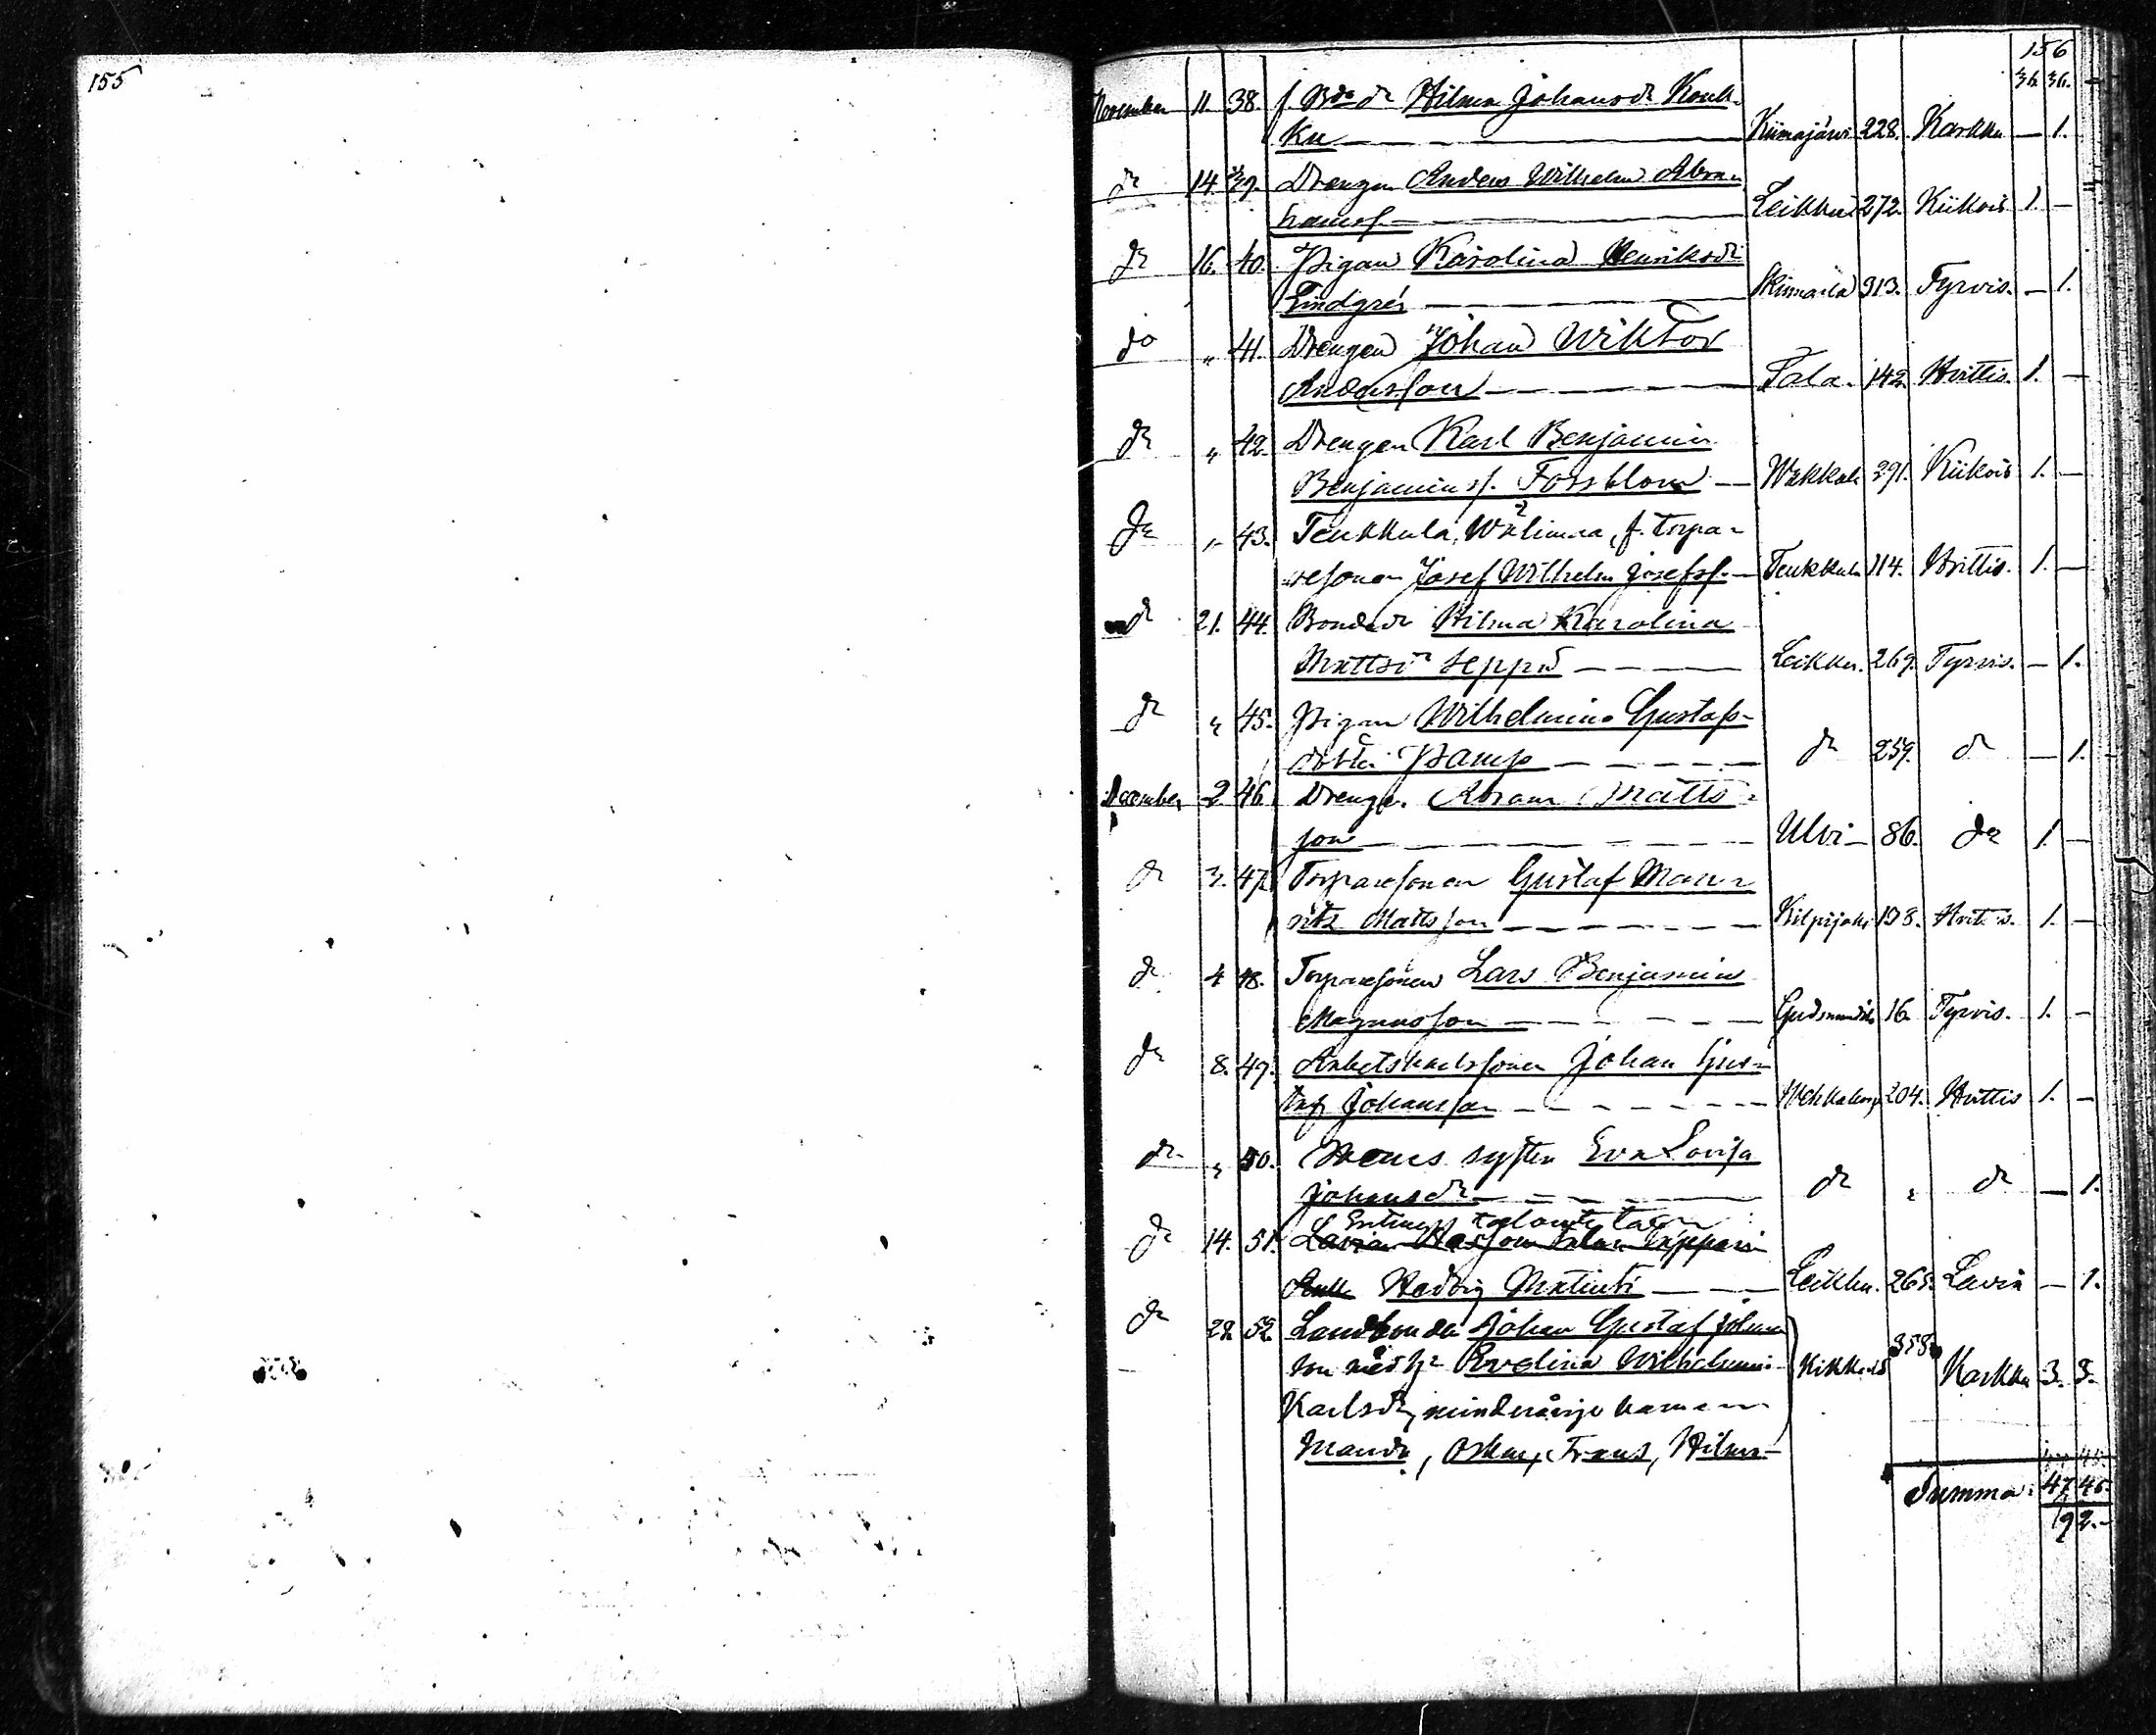 155
156
36. 36.
November 11. 38. f. Bde dr Hilma Johansdr Kouk-
ku — Kiimajärvi 228. Karkku — 1.
dr 14. 39. Drengen Anders Wilhelm Abra-
hamsf. — Leikku 272. Kiikois 1. —
dr 16. 40. Pigan Karolina Henriksdr
Lindgrén — 313. Tyrvis. — 1.
do " 41. Drengen Johan Wiktor
Andersson — Tala. 142. Hvittis. 1. —
dr " 42. Drengen Karl Benjamin
Benjaminsf. Forsblom — Wakkala 291. Kiikois 1. —
dr " 43. Teukkula, Wälimaa, f. torpa-
resonen Josef Wilhelm Josefsf. — Teukkula 114. Hvittis. 1. —
dr 21. 44. Bondedr Hilma Karolina
Mattsdr Seppä — Leikku. 269. Tyrvis. — 1.
dr " 45. Pigan Wilhelmina Gustafs-
dotter Kamp — dr 259. dr — 1.
December 2. 46. Drengen Abram Matts-
son — Ulvi — 86. dr 1. —
dr 3. 47. Torparesonen Gustaf Mau-
ritz Mattsson — Kilpijoki 198. Hvittis. 1. —
dr 4 48. Torparesonen Lars Benjamin
Magnusson — Gudmundila 16. Tyrvis. 1. —
dr 8. 49. Arbetskarlssonen Johan Gus-
taf Johansson — 204. Hvittis 1. —
dr " 50. Dens syster Eva Lovisa
Johansdr — dr " dr — 1.
dr 14. 51. Entinen talontytär
Hedvig Matintr — Leikku. 265. Lavia — 1.
dr 22. 52. Landbonden Johan Gustaf Johans-
son med h. Evelina Wilhelmina
Karlsdr, minderårige barnen Kikkerlä 358. Karkku 3. 3.
Manda, Oskar, Frans, Hilma
Summa: 47. 45.
92. —